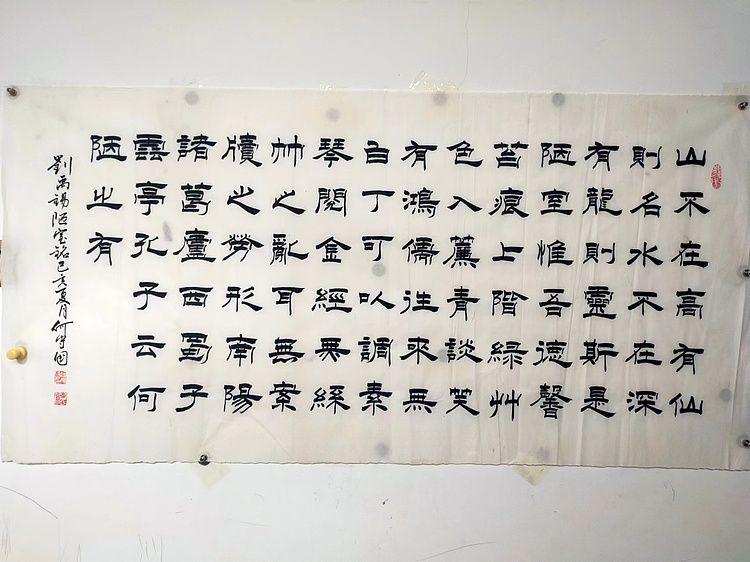 山不在高有仙
則名水不在深
有龍則靈斯是
陋室惟吾德馨
苔痕上階綠艸
色入簾青談笑
有鴻儒往來無
白丁可以調素
琴閱金經無絲
竹之亂耳無案
牘之勞形南陽
諸葛廬西蜀子
雲亭孔子云何
陋之有
劉禹錫陋室銘己亥夏月何守国